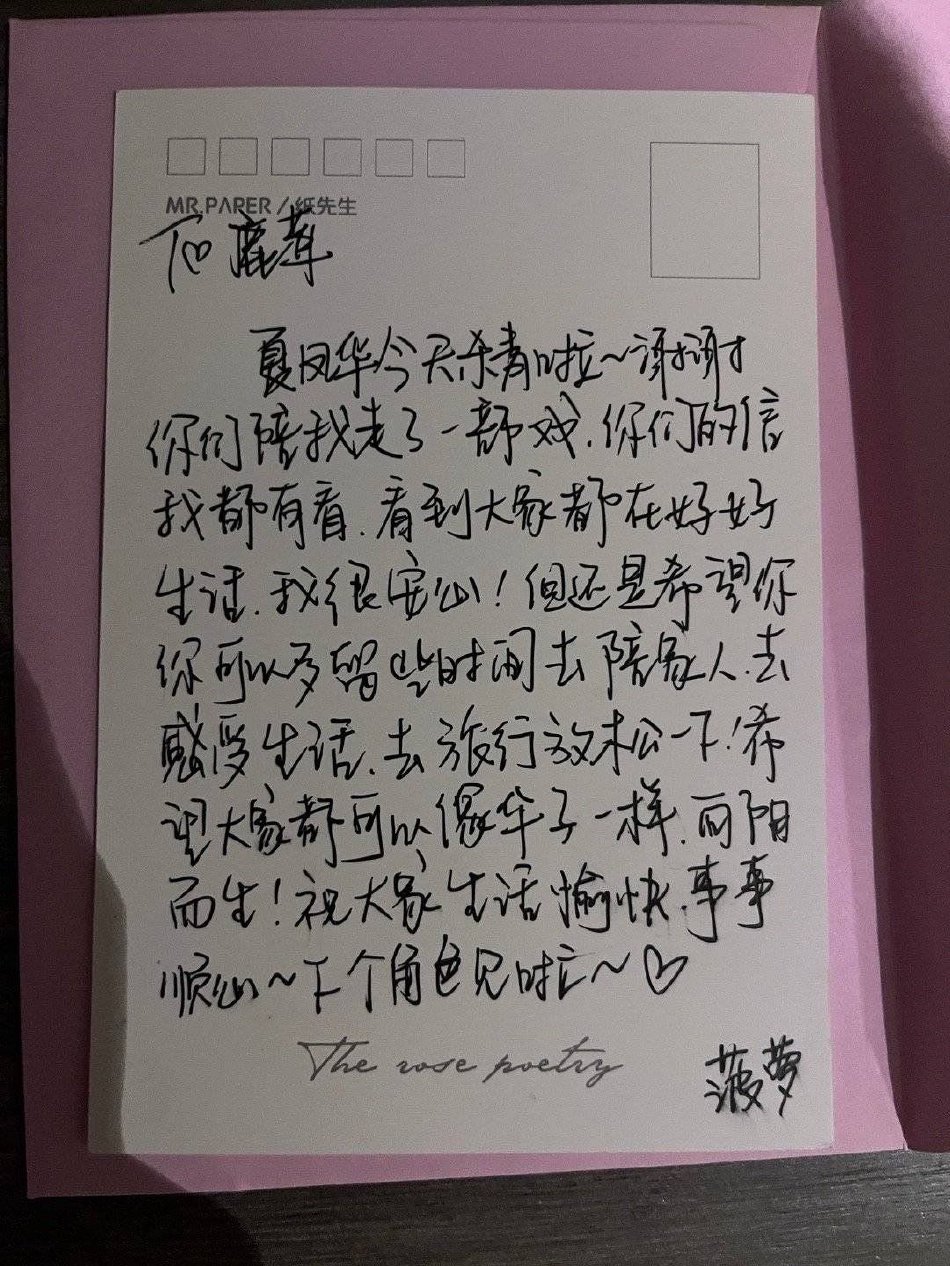 MR.PAPER／纸先生
To 鹿茸
夏凤华今天杀青啦～谢谢
你们陪我走了一部戏.你们的信
我都有看.看到大家都在好好
生活.我很安心!但还是希望你
你可以多留些时间去陪家人.去
感受生活.去旅行放松一下!希
望大家都可以像华子一样.向阳
而生!祝大家生活愉快.事事
顺心～下个角色见啦～♡
The rose poetry
菠萝